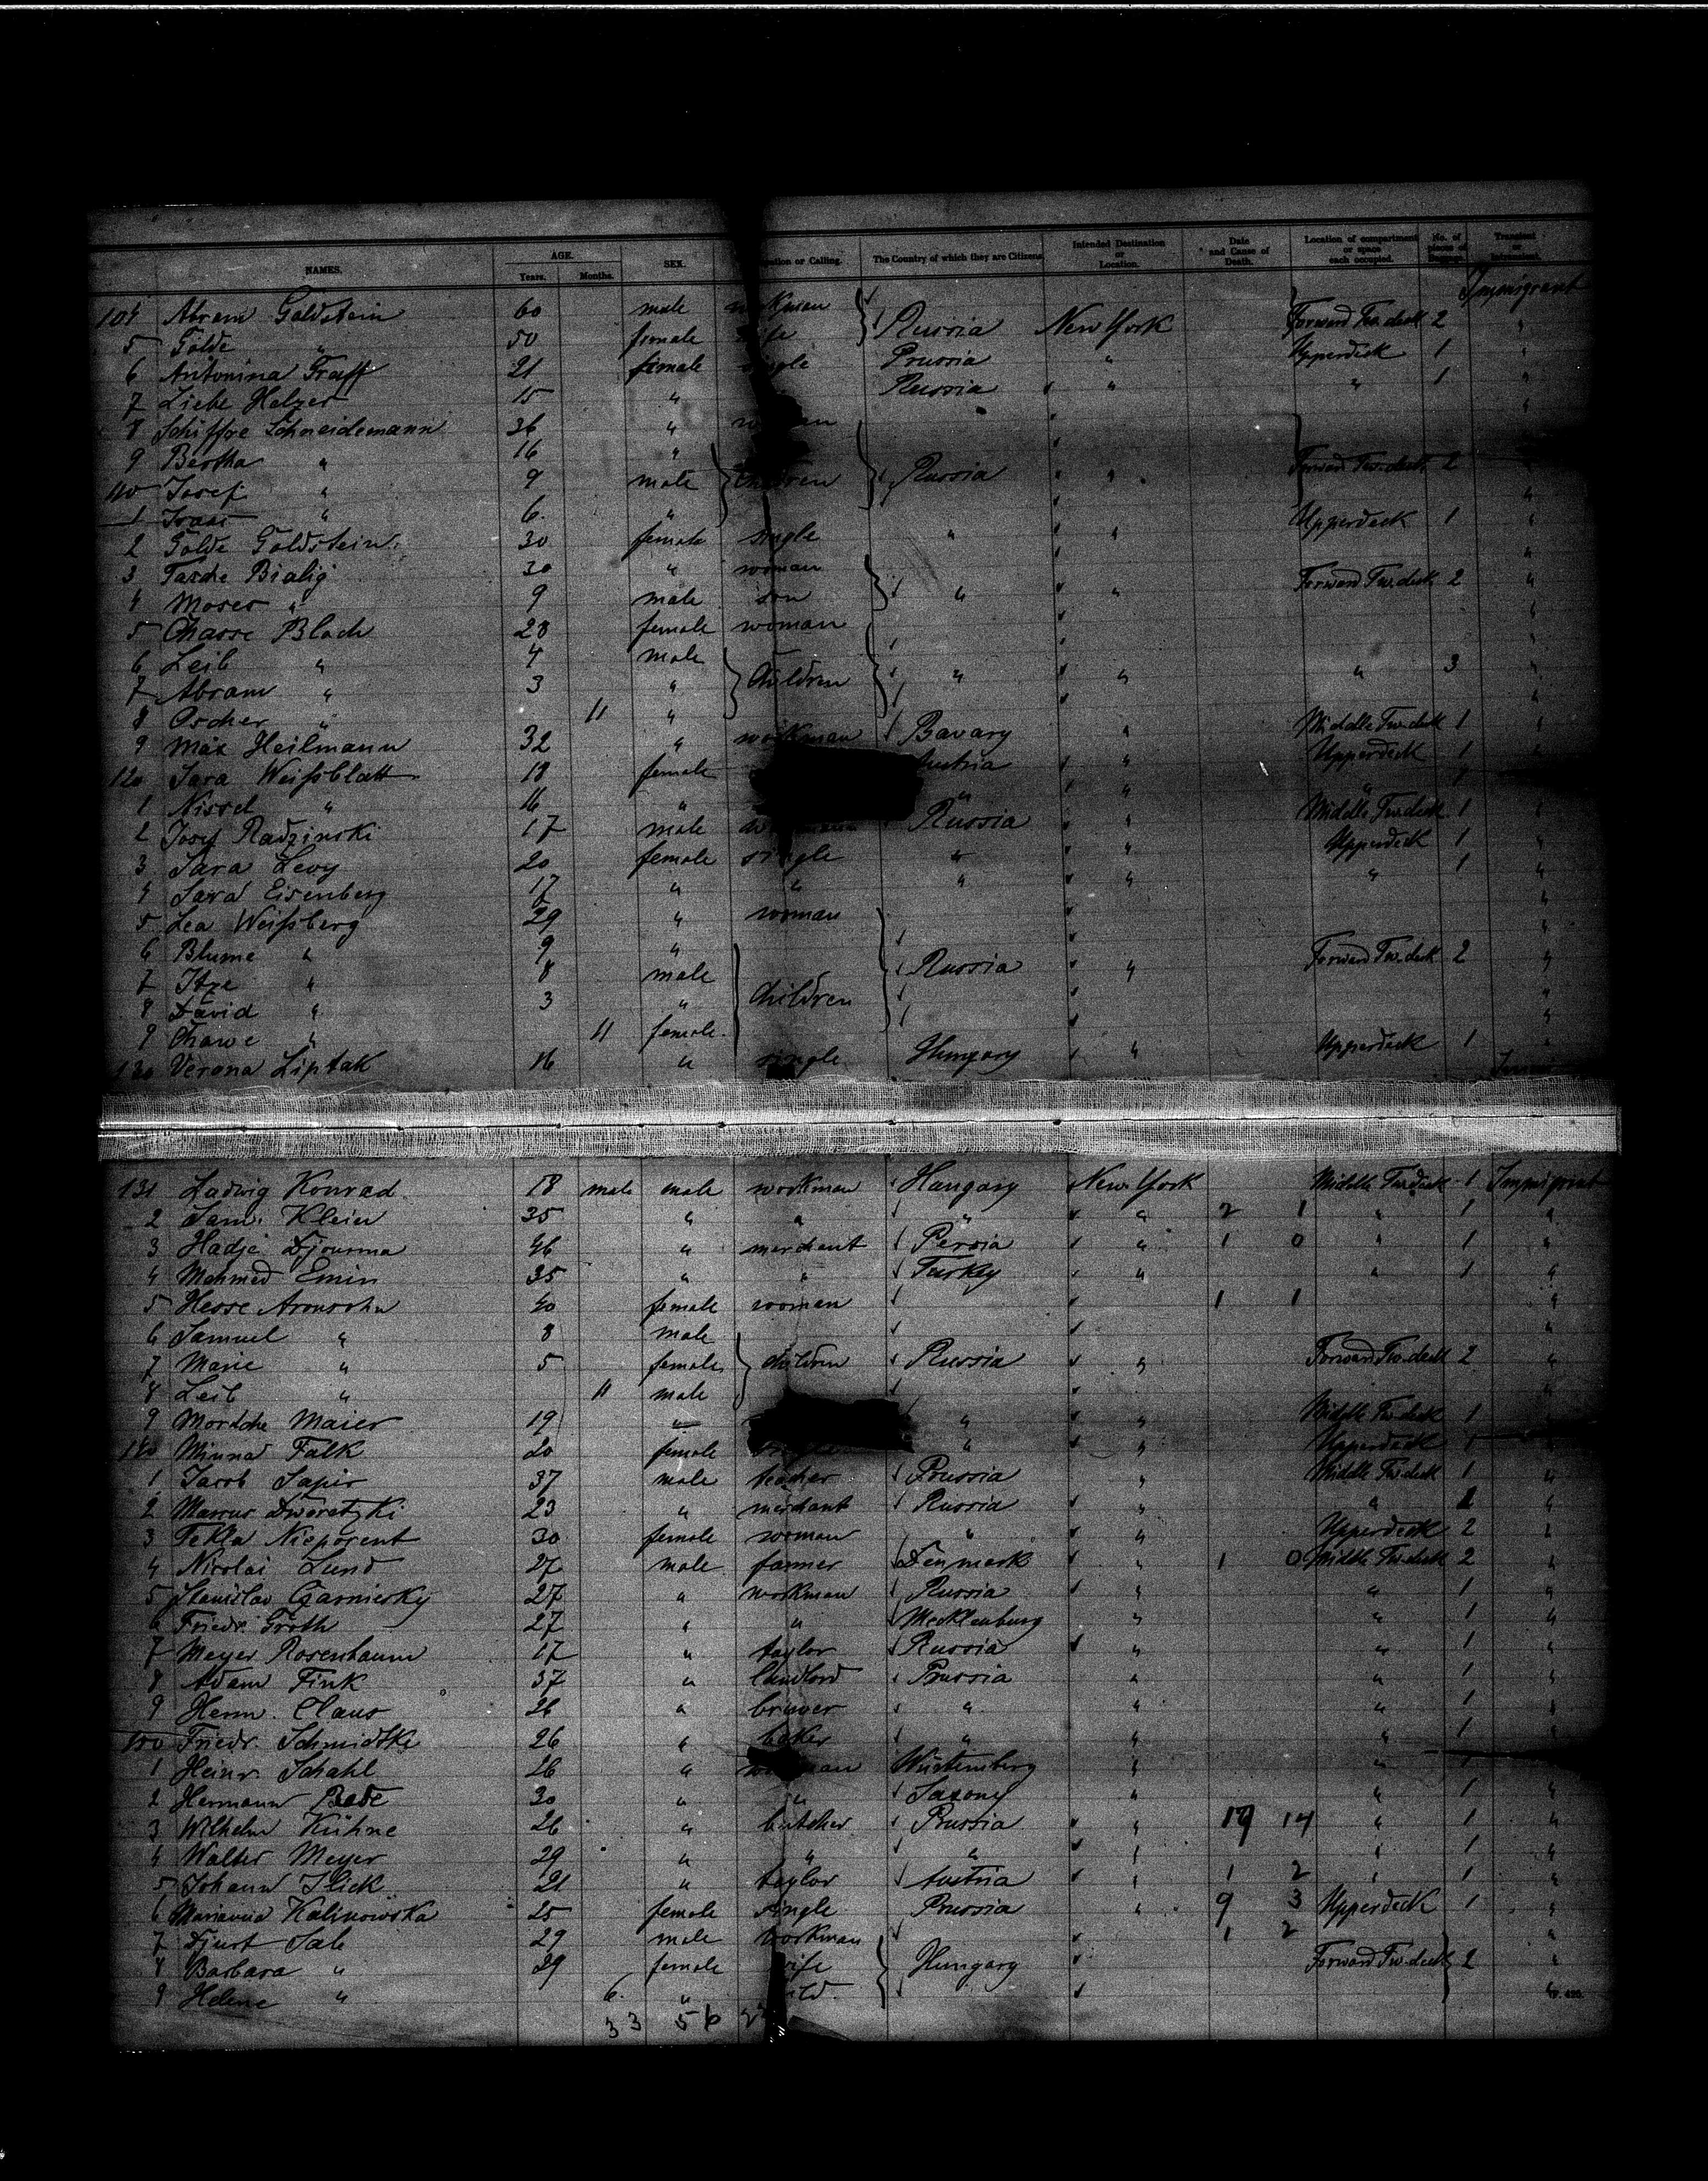 NAMES. AGE. Years. Months. SEX. ation or Calling. The Country of which they are Citizens. Intended Destination or Location. Date and Cause of Death. Location of compartment or space each occupied. No. of pieces of Baggage. Transient or Immigrant.
104 Abram Goldstein 60 male workman Immigrant
5 Golde " 50 female wife Russia New York Forward Tw. deck 2 "
6 Antonina Graff 21 female single Prussia " Upperdeck 1 "
7 Liebe Helzer 15 " Russia " " 1 "
8 Schiffre Schneidemann 36 " woman "
9 Bertha " 16 "
110 Josef " 9 male children Russia " Forward Tw. deck 2
1 " 6 " "
2 Golde Goldstein 30 female single " " Upperdeck 1 "
3 Tasche Bialig 30 " woman "
4 Moses " 9 male son " " Forward Tw. deck 2 "
5 Chasse Bloch 28 female woman "
6 Leib " 4 male "
7 Abram " 3 " Children " " " 3 "
8 Ascher " 11 " "
9 Max Heilmann 32 " workman Bavary " Middle Tw. deck 1 "
120 Sara Weißblatt 18 female Austria " Upperdeck 1 "
1 Nissel " 16 " " " " "
2 Josef Radzinski 17 male Russia " Middle Tw. deck 1 "
3 Sara Levy 20 female single " " Upperdeck 1 "
4 Sara Eisenberg 17 " " " " " 1 "
5 Lea Weißberg 29 " woman "
6 Blume " 9 " "
7 Itze " 8 male Russia " Forward Tw. deck 2 "
8 David " 3 " Children "
9 Chawe " 11 female "
130 Verona Liptak 16 " single Hungary " Upperdeck 1 "
131 Ludwig Konrad 18 male male workman Hungary New York Middle Tw. deck 1 Immigrant
2 Sam. Klein 35 " " " " 2 1 " 1 "
3 Hadje Djourma 46 " merchant Persia " 1 0 " 1 "
4 Mehmed Emin 35 " " Turkey " " 1 "
5 Hesse Aronsohn 40 female woman 1 1 "
6 Samuel " 8 male "
7 Marie " 5 female children Russia " Forward Tw. deck 2 "
8 Leib " 11 male "
9 Mordche Maier 19 " " " Middle Tw. deck 1 "
140 Minna Falk 20 female single " " Upperdeck 1 "
1 Jacob Sapir 37 male teacher Prussia " Middle Tw. deck 1 "
2 Marcus Dworetzki 23 " merchant Russia " " 1 "
3 Tekla Nieporent 30 female woman " " Upperdeck 2 "
4 Nicolai Lund 27 male farmer Denmark " 1 0 Middle Tw. deck 2 "
5 Stanislav Czarniecky 27 " workman Russia " " 1 "
6 Friedr. Groth 27 " " Mecklenburg " " 1 "
7 Meyer Rosenbaum 17 " taylor Russia " " 1 "
8 Adam Fink 37 " landlord Prussia " " 1 "
9 Herm. Claus 26 " bruver " " " 1 "
150 Friedr. Schmidtke 26 " baker " " " 1 "
1 Heinr. Schahl 26 " workman Würtemberg " " 1 "
2 Hermann Bade 30 " " Saxony " " 1 "
3 Wilhelm Kühne 26 " butcher Prussia " 19 14 " 1 "
4 Walter Meyer 29 " " " " " 1 "
5 Johann Ilick 21 " taylor Austria " 1 2 " 1 "
6 Marianna Kalinowska 25 female single Prussia " 9 3 Upperdeck 1 "
7 Sale 29 male workman 1 2 "
8 Barbara " 29 female wife Hungary Forward Tw. deck 2 "
9 Helene " 6 " child. "
33 56